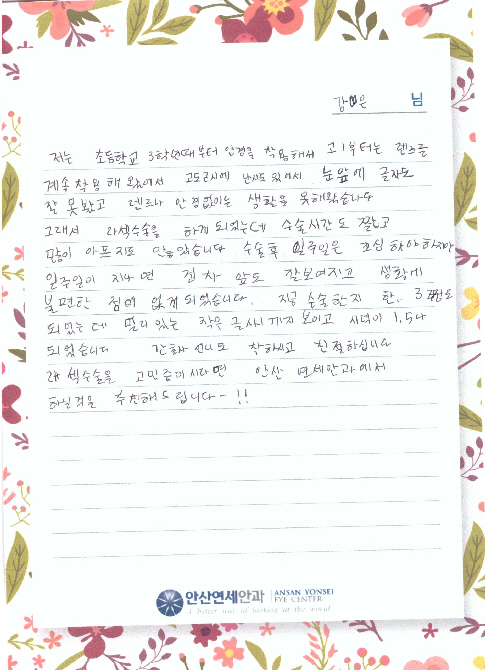 강은 님
저는 초등학교 3학년때부터 안경을 착용해서 고1부터는 렌즈를
계속 착용해 왔어서 고도근시에 난시도 있어서 눈앞에 글자도
잘 못봤고 렌즈나 안경없이는 생활을 못해왔습니다
그래서 라섹수술을 하게 되었는데 수술시간도 짧고
많이 아프지도 않았습니다 수술후 일주일은 조심해야하지만
일주일이 지나면 점차 앞도 잘보여지고 생활에
불편한 점이 없게 되었습니다. 지금 수술한지 한.. 3주정도
되었는데 멀리 있는 작은 글씨까지 보이고 시력이 1.5나
되었습니다 간호사 언니도 착하시고 친절하십니다
라섹수술을 고민중이시라면 안산 연세안과에서
하실것을 추천해드립니다~!!
안산연세안과 ANSAN YONSEI
EYE CENTER
A better way of looking at the world